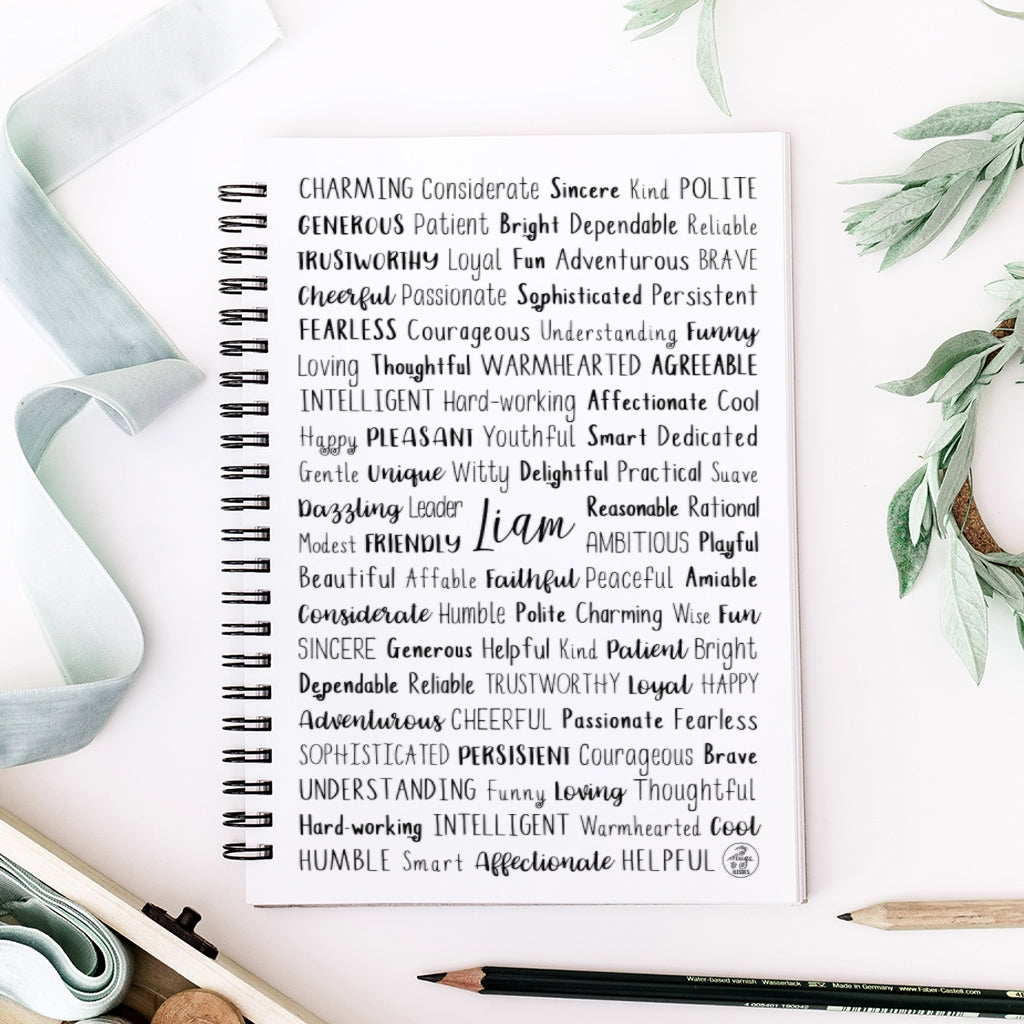 CHARMING Considerate Sincere Kind POLITE
GENEROUS Patient Bright Dependable Reliable
TRUSTWORTHY Loyal Fun Adventurous BRAVE
Cheerful Passionate Sophisticated Persistent
FEARLESS Courageous Understanding Funny
Loving Thoughtful WARMHEARTED AGREEABLE
INTELLIGENT Hard-working Affectionate Cool
Happy PLEASANT Youthful Smart Dedicated
Gentle Unique Witty Delightful Practical Suave
Dazzling Leader Reasonable Rational
Liam
Modest FRIENDLY AMBITIOUS Playful
Beautiful Affable Faithful Peaceful Amiable
Considerate Humble Polite Charming Wise Fun
SINCERE Generous Helpful Kind Patient Bright
Dependable Reliable TRUSTWORTHY Loyal HAPPY
Adventurous CHEERFUL Passionate Fearless
SOPHISTICATED PERSISTENT Courageous Brave
UNDERSTANDING Funny Loving Thoughtful
Hard-working INTELLIGENT Warmhearted Cool
HUMBLE Smart Affectionate HELPFUL
KISSES
Water-based varnish Wasserlack Made in Germany www.Faber-Castell.com
4 005401 190042